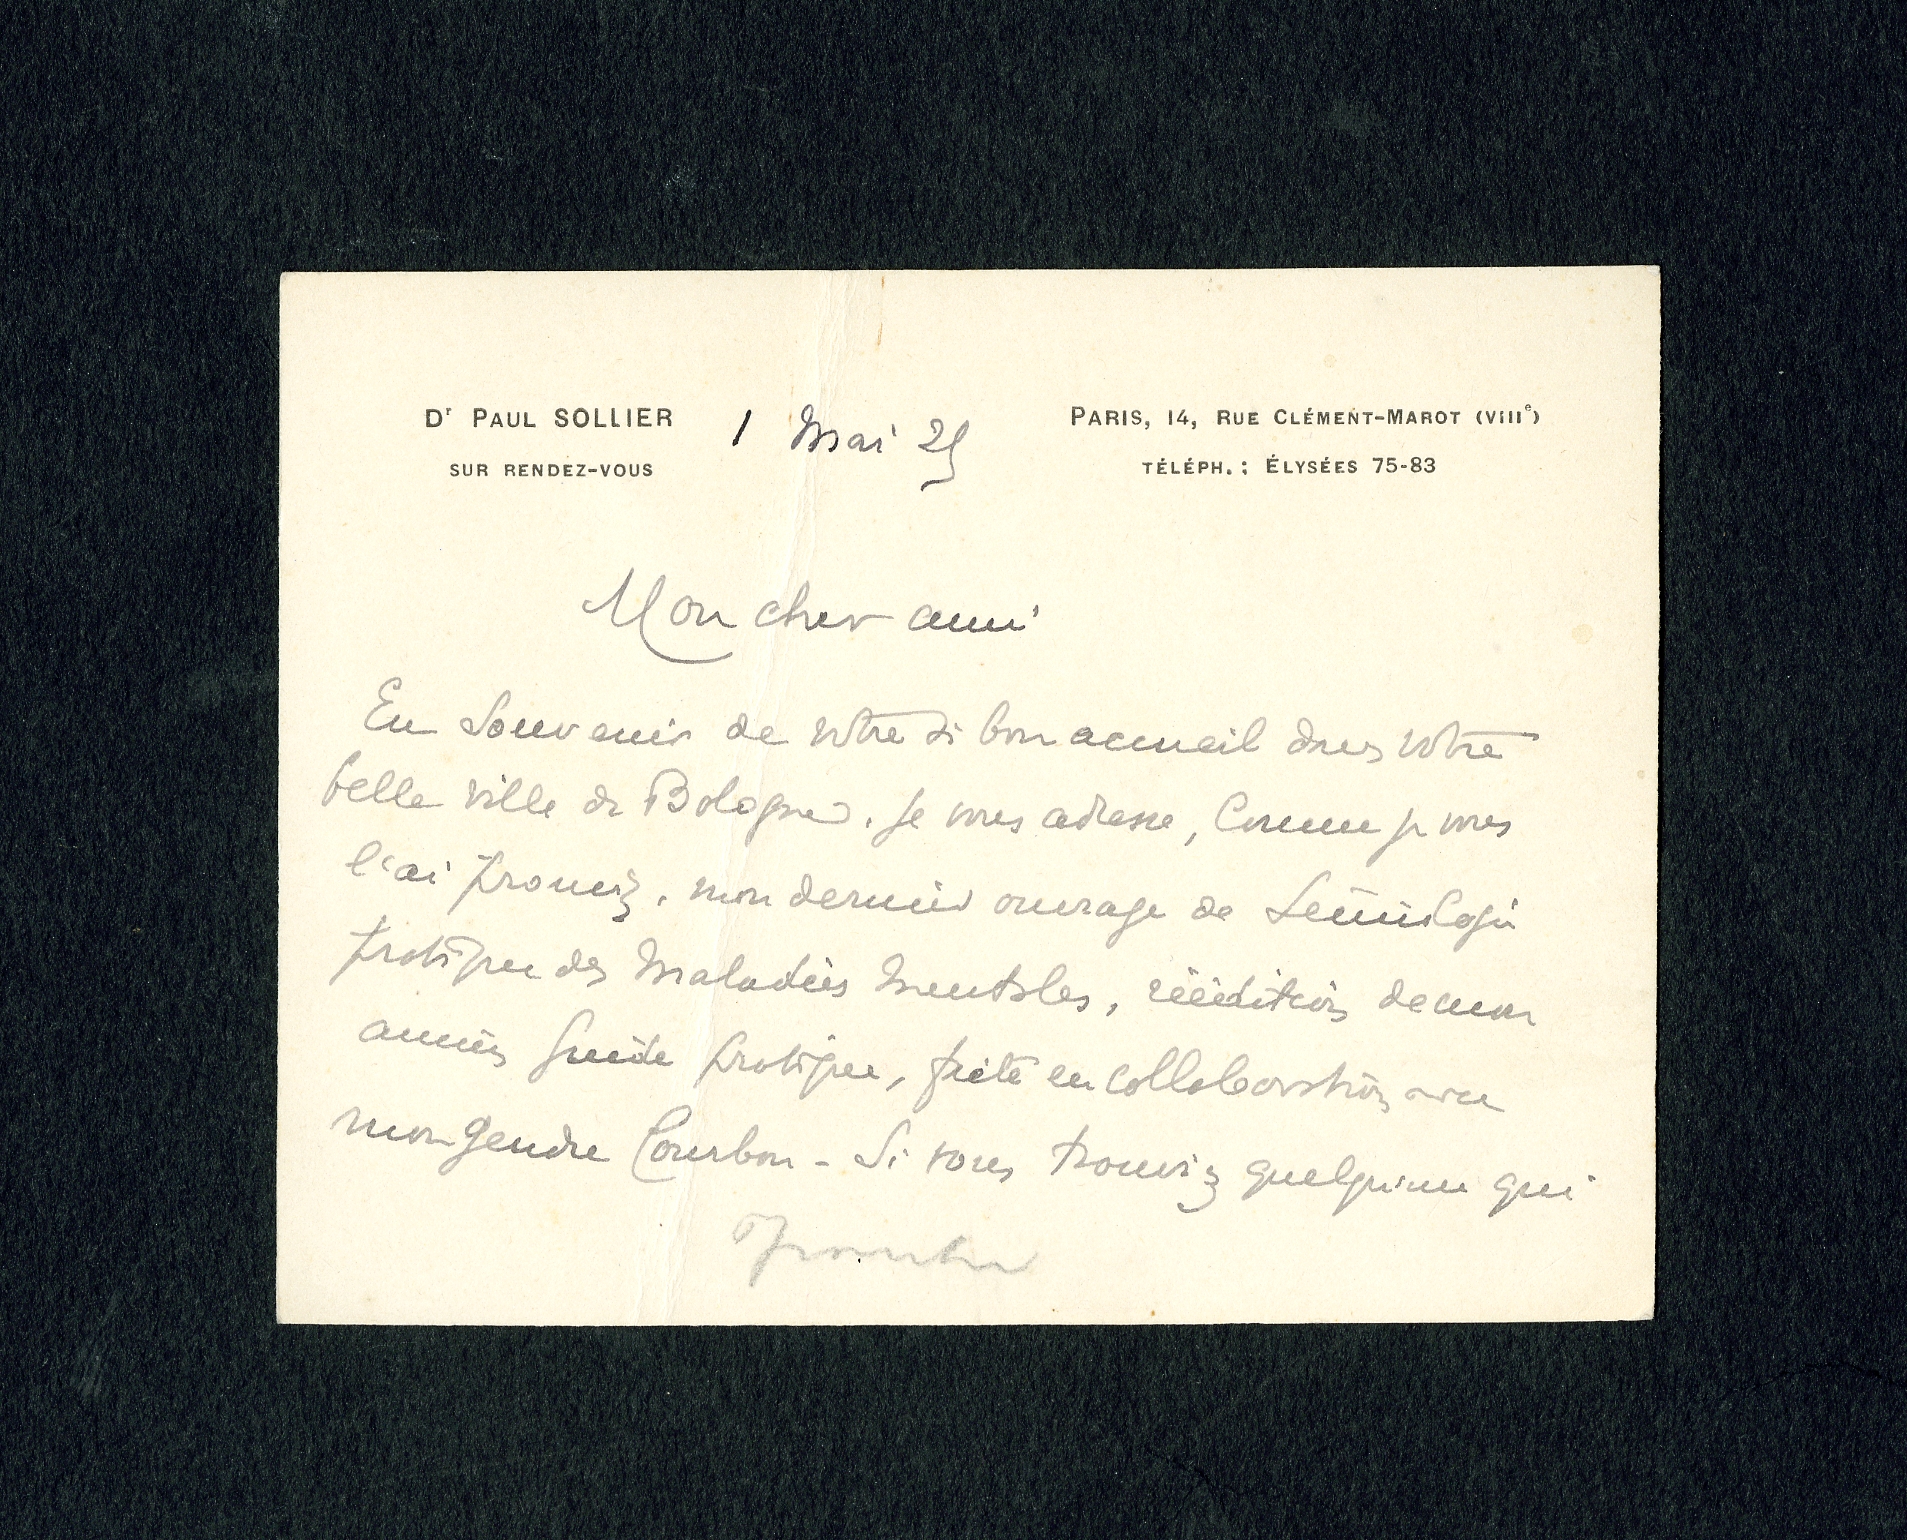 Dr PAUL SOLLIER
SUR RENDEZ-VOUS
1 Mai 25
PARIS, 14, RUE CLÉMENT-MAROT (VIIIe)
TÉLÉPH. : ÉLYSÉES 75-83
Mon cher ami
En souvenir de votre si bon accueil dans votre
belle ville de Bologne, je vous adresse, comme je vous
l'ai promis, mon dernier ouvrage de Sémiologie
pratique des Maladies Mentales, réédition de mon
ancien Guide pratique, faite en collaboration avec
mon gendre Courbon - Si vous trouviez quelqu'un qui